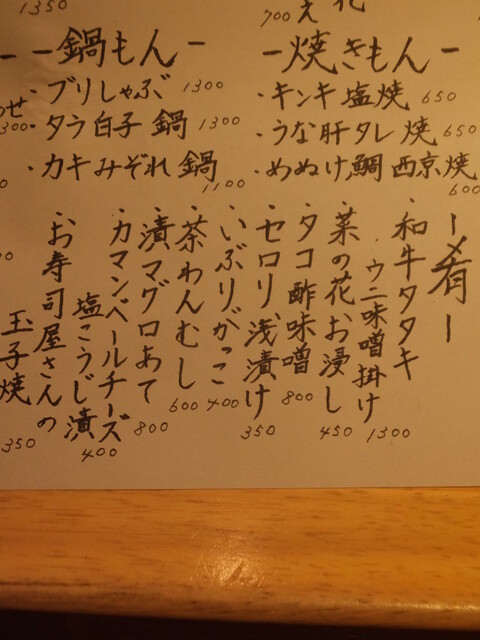 1350
700
-焼きもん-
・キンキ塩焼 650
・うな肝タレ焼 650
・めぬけ鯛西京焼 600
-鍋もん-
・ブリしゃぶ 1300
・タラ白子鍋 1300
・カキみぞれ鍋 1100
ー肴ー
・和牛タタキ
ウニ味噌掛け 1300
・菜の花お浸し 450
・タコ酢味噌 800
・セロリ浅漬け 350
・いぶりがっこ 400
・茶わんむし 600
・漬マグロあて 800
・カマンベールチーズ
塩こうじ漬 400
・お寿司屋さんの
玉子焼 350